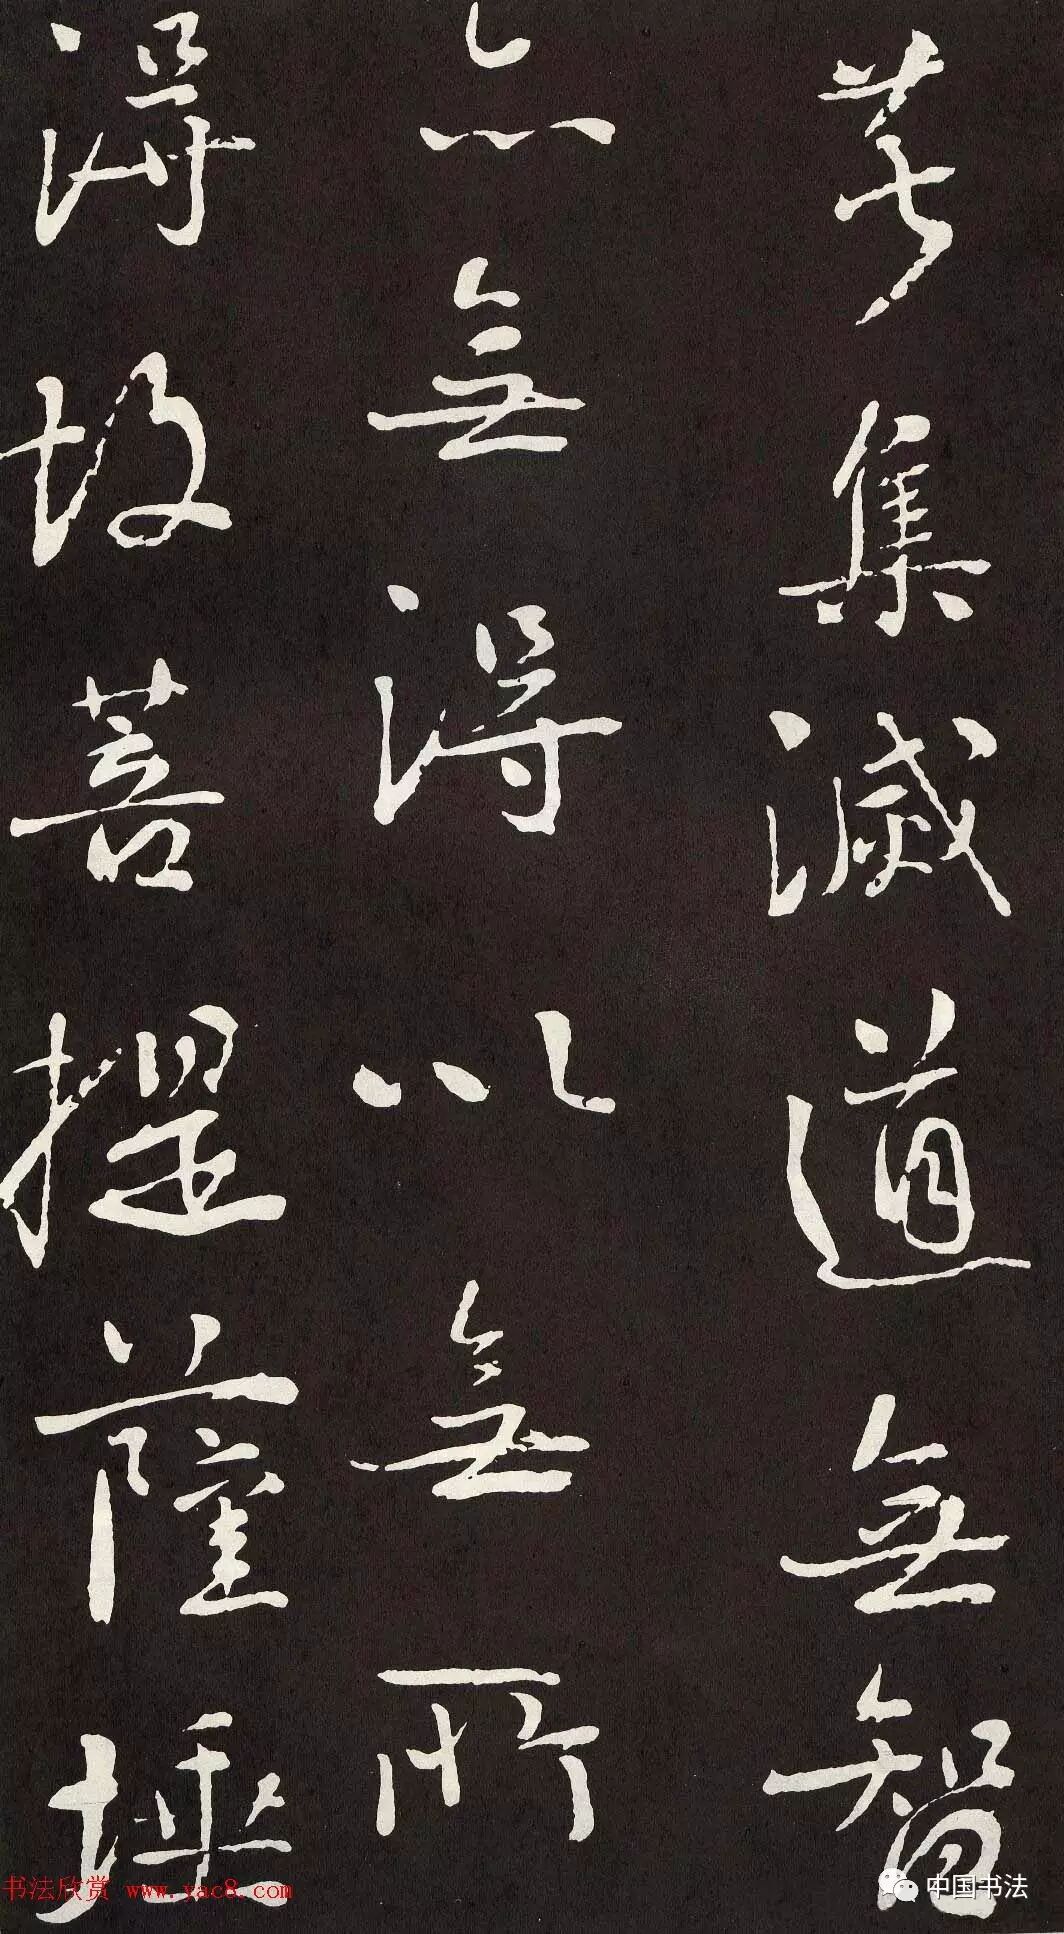 苦集滅道無智
亦無得以無所
得故菩提薩埵
书法欣赏 www.yac8.com
中国书法